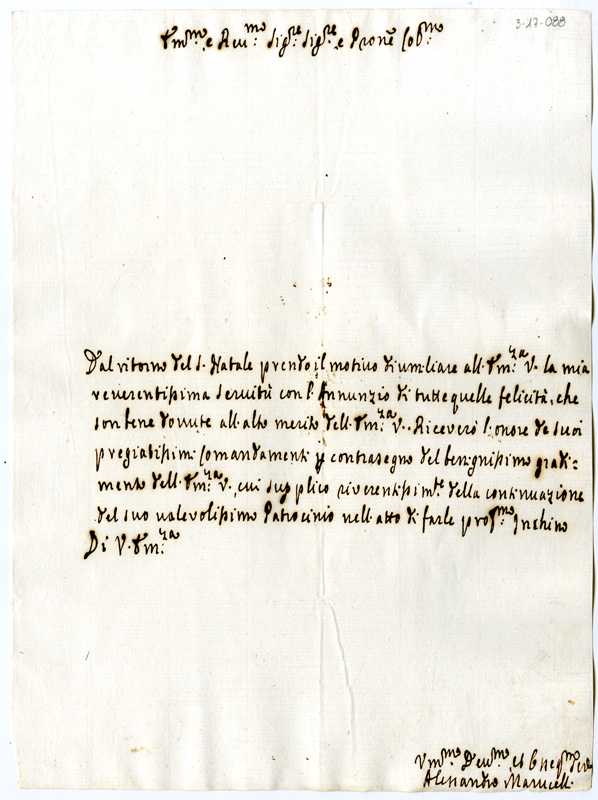 3-17-088
Em.mo e Rev.mo Sig.re Sig.re e Prone Col.mo
Dal ritorno del S. Natale prendo il motivo di umiliare all' Em.za V. la mia
reverentissima servitù con l' Annunzio di tutte quelle felicità, che
son bene dovute all' alto merito dell' Em.za V. Riceverò l' onore de suoi
pregiatissimi Comandamenti p contrasegno del benignissimo gradi=
mento dell' Em.za V., cui supplico riverentissim.te della continuazione
del suo valevolissimo Patrocinio nell' atto di farle prof.mo Inchino
Di V. Em.za
Um.mo Dev.mo et Obblig.mo
Alessandro Marucelli